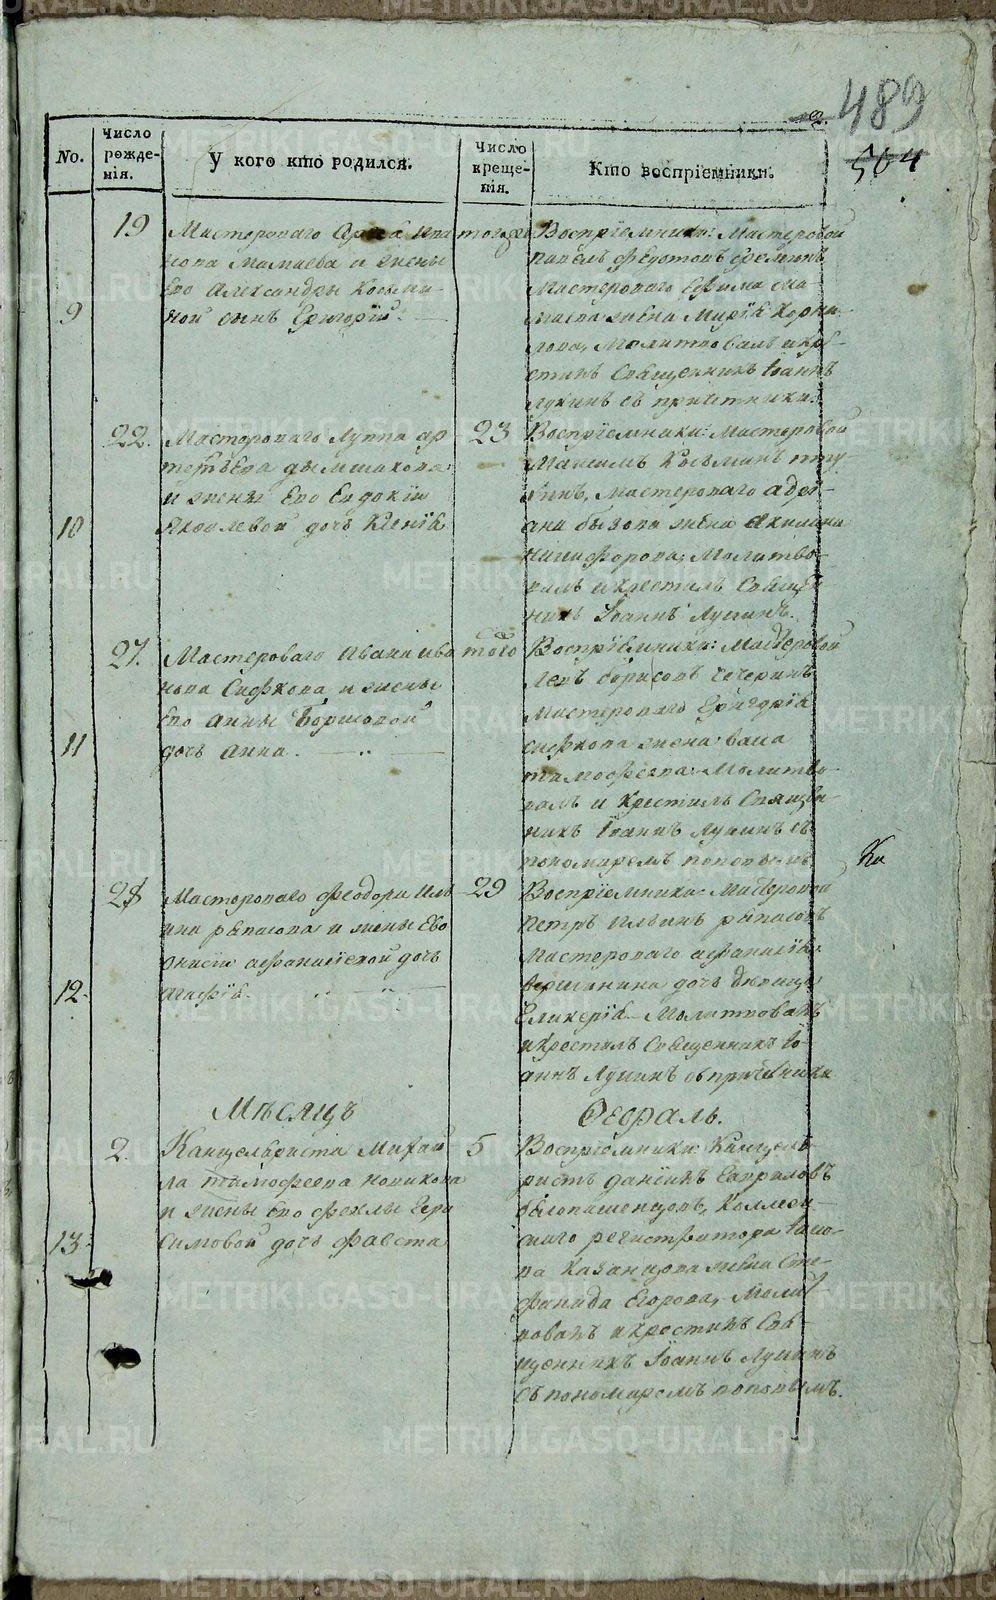 489
504
No.
Число рожденія.
У кого кто родился.
Число крещенія.
Кто воспріемники.
9
19
Мастероваго
нова Мамаева и жены
Его Александры Козьми-
ной сынъ Григорій.
тогоже
Воспріемники: Мастеровой
Павелъ Федотовъ Ереминъ
Мастероваго Ефима Ма-
маева жена Марія Корни-
лова, Молитвовалъ и кре-
стилъ Священникъ Іоаннъ
Лукинъ съ причетники.
10
22.
Мастероваго Луппа ар
темьева дымшакова
и жены Его Евдокіи
Яковлевой дочь Ксенія
23
Воспріемники: Мастеровой
Максимъ Козьминъ
Мастероваго адрі-
ана бызова жена акилина
никифорова, Молитво-
валъ и крестилъ Священ
никъ Іоаннъ Лукинъ.
11
27.
Мастероваго Ивана ива
нова Сифкова и жены
его анны Борисовой
дочь анна.
того
Воспріемники: Мастеровой
Левъ борисовъ чечеринъ
Мастероваго Григорія
сифкова жена васа
тимофеева: Молитво-
валъ и Крестилъ Священ-
никъ Іоаннъ Лукинъ съ
пономаремъ поповымъ
Ки
12.
28
Мастероваго феодора Иль
ина репасова и жены Его
Онисіи афанасіевой дочь
агафія.
29
Воспріемники: Мастеровой
петръ ильинъ репасовъ
Мастероваго афанасія
вершинина дочь девица
Гликерія Молитвовалъ
и крестилъ Священникъ Іо
аннъ Лукинъ съ причетники
Мѣсяцъ Февраль.
13.
2.
Канцеляриста Михаи
ла тимофеева новикова
и жены Его феклы Гера
симовой дочь фавста
5
Воспріемники: Канцеля-
ристъ Гавриловъ
белопашенцовъ, Коллеж-
скаго регистратора Іако-
ва Казанцова жена Сте-
фанида Егорова, Молит
вовалъ и крестилъ Свя-
щенникъ Іоаннъ Лукинъ
съ пономаремъ поповымъ.
METRIKI.GASO-URAL.RU